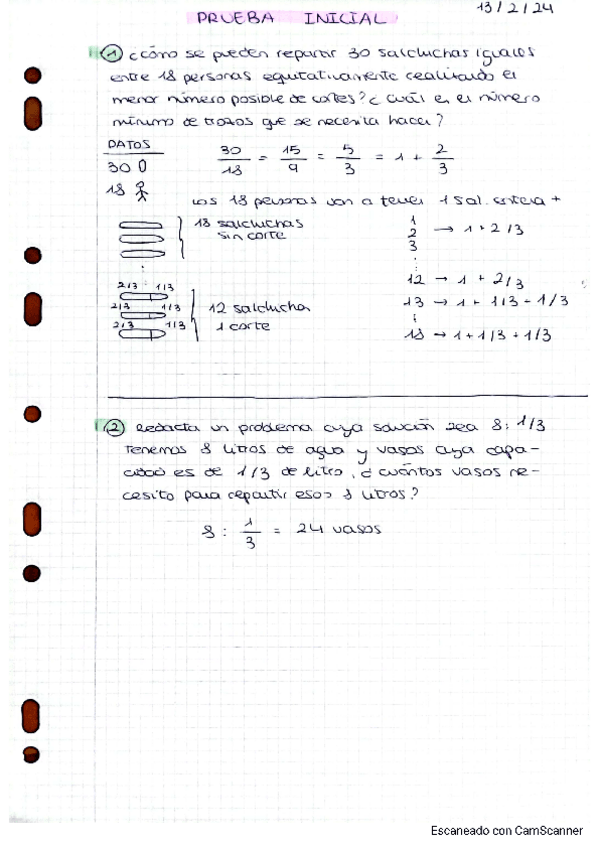 13/2/24
PRUEBA INICIAL
1 ¿cómo se pueden repartir 30 salchichas iguales
entre 18 personas equitativamente realizando el
menor número posible de cortes? ¿Cuál es el número
mínimo de trozos que se necesita hacer?
DATOS
30
18
30/18 = 15/9 = 5/3 = 1 + 2/3
Los 18 personas van a tener 1 sal. entera +
18 salchichas
sin corte
1
2 → 1 + 2/3
3
12 → 1 + 2/3
13 → 1 + 1/3 + 1/3
18 → 1 + 1/3 + 1/3
2/3 1/3
2/3 1/3
2/3 1/3
12 salchicha
1 corte
2 Redacta un problema cuya solución sea 8: 1/3
Tenemos 8 litros de agua y vasos cuya capa-
cidad es de 1/3 de litro, ¿cuántos vasos ne-
cesito para repartir esos 8 litros?
8 : 1/3 = 24 vasos
Escaneado con CamScanner